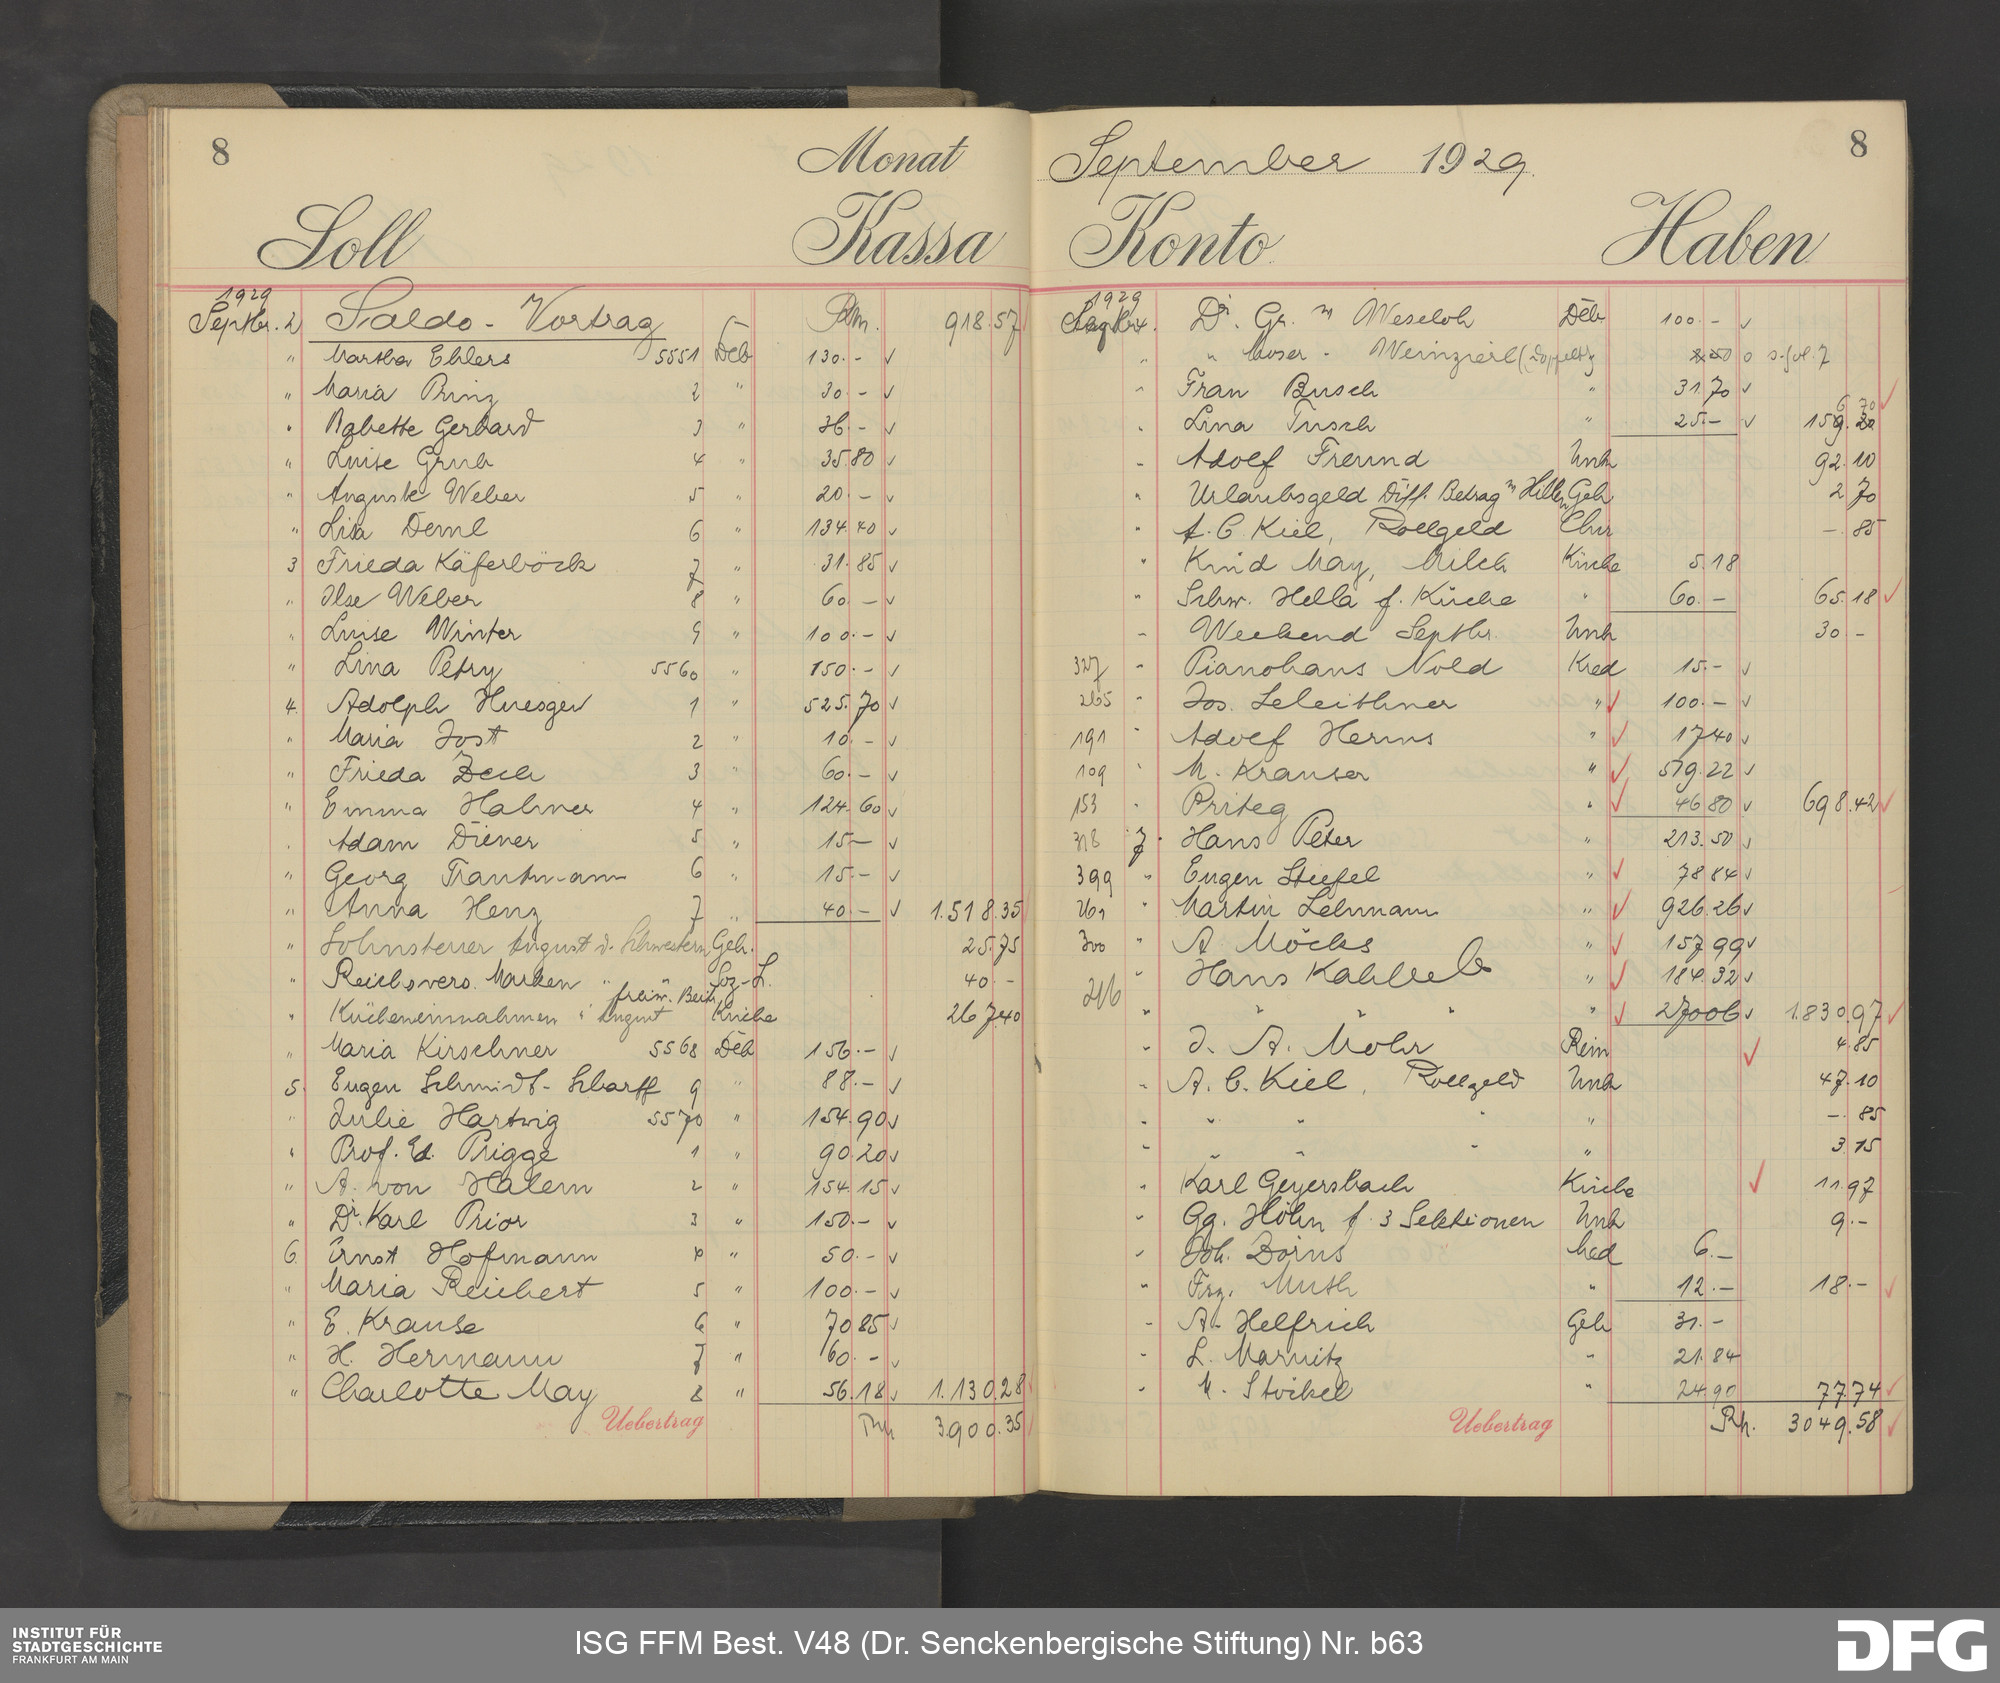 8 Monat
Soll Kassa
1929
Septbr. 2 Saldo-Vortrag Rm. 918.57
" Martha Ehlers 5551 Deb 130.- ✓
" Maria Prinz 2 " 30.- ✓
" Babette Gerhard 3 " 36.- ✓
" Luise Grub 4 " 35.80 ✓
" Auguste Weber 5 " 20.- ✓
" Lisa Deml 6 " 134.40 ✓
3 Frieda Käferböck 7 " 31.85 ✓
" Ilse Weber 8 " 60.- ✓
" Luise Winter 9 " 100.- ✓
" Lina Petry 5560 " 150.- ✓
4. Adolph Huesgen 1 " 525.70 ✓
" Maria Jost 2 " 10.- ✓
" Frieda Zech 3 " 60.- ✓
" Emma Hahner 4 " 124.60 ✓
" Adam Diener 5 " 15.- ✓
" Georg Trautmann 6 " 15.- ✓
" Anna Henz 7 " 40.- ✓ 1.518.35
" Lohnsteuer August d. Schwestern Geh. 25.75
" Reichsvers. Marken " " Soz-L. 40.-
freiw. Beitr.
" Kücheneinnahmen " August Küche 267.40
" Maria Kirschner 5568 Deb 156.- ✓
5. Eugen Schmidt-Scharff 9 " 88.- ✓
" Julie Hartwig 5570 " 154.90 ✓
" Prof. Ed. Prigge 1 " 90.20 ✓
" A. von Halem 2 " 154.15 ✓
" Dr. Karl Prior 3 " 150.- ✓
6. Ernst Hofmann 4 " 50.- ✓
" Maria Reichert 5 " 100.- ✓
" E. Krause 6 " 70.85 ✓
" H. Hermann 7 " 60.- ✓
" Charlotte May 8 " 56.18 ✓ 1.130.28
Uebertrag Rm 3.900.35
September 1929. 8
Konto Haben
1929
Septbr 4. Dr. Gr. n Weseloh Deb 100.- ✓
" " Moser - Weinzierl (doppelt) " o s. fol. 7
" Frau Busch " 31.70 ✓
" Lina Tusch " 25.- ✓ 156.70
" Adolf Freund Unk 92.10
" Urlaubsgeld Diff. Betrag n Hilber Geh 2.70
" A. C. Kiel, Rollgeld Chir -.85
" Kind May, Milch Küche 5.18
" Schw. Hella f. Küche " 60.- 65.18 ✓
" Weekend Septbr. Unk 30.-
327 " Pianohaus Nold Kred 15.- ✓
265 " Jos. Seleithner " ✓ 100.- ✓
191 " Adolf Herms " ✓ 17.40 ✓
109 " M. Krauser " ✓ 519.22 ✓
153 " Priteg " ✓ 46.80 ✓ 698.42 ✓
318 7. Hans Peter " 213.50 ✓
399 " Eugen Stiefel " ✓ 78.84 ✓
261 " Martin Lehmann " ✓ 926.26 ✓
300 " A. Möcks " ✓ 157.99 ✓
216 " Hans Kahl " ✓ 184.32 ✓
" " " " " ✓ 270.06 ✓ 1.830.97 ✓
" J. A. Mohr Rein ✓ 4.85
" A. C. Kiel, Rollgeld Unk 47.10
" " " " " -.85
" " " " " 3.15
" Karl Geyersbach Küche ✓ 11.97
" Gg. Höhn f. 3 Sektionen Unk 9.-
" Joh. Dorns Med 6.-
" Frz. Muth " 12.- 18.- ✓
" A. Helfrich Geh 31.-
" L. Marnitz " 21.84
" M. Stöckel " 24.90 77.74 ✓
Uebertrag Rm. 3049.58 ✓
INSTITUT FÜR
STADTGESCHICHTE
FRANKFURT AM MAIN
ISG FFM Best. V48 (Dr. Senckenbergische Stiftung) Nr. b63
DFG